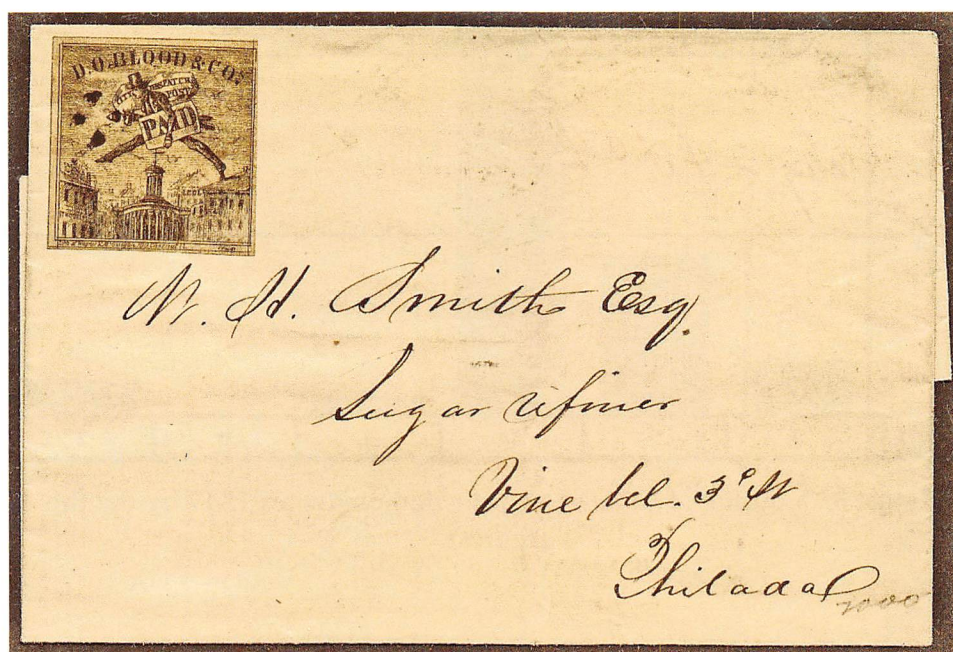 D.O. BLOOD & Co's
CITY DESPATCH
POST
PAID
W. H. Smith Esq.
Sugar refiner
Vine bel. 3d St
Philada